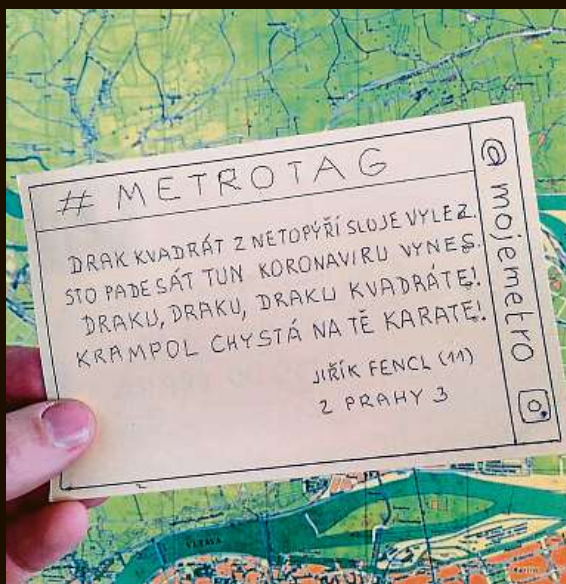 # METROTAG
DRAK KVADRÁT Z NETOPÝŘÍ SLUJE VYLEZ.
STO PADESÁT TUN KORONAVIRU VYNES.
DRAKU, DRAKU, DRAKU KVADRÁTE!
KRAMPOL CHYSTÁ NA TĚ KARATE!
JIŘÍK FENCL (11)
Z PRAHY 3
@mojemetro
VLTAVA